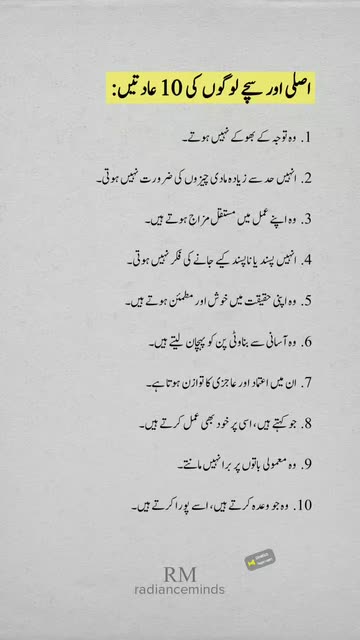 اصلی اور سچے لوگوں کی 10 عادتیں:
1. وہ توجہ کے بھوکے نہیں ہوتے۔
2. انہیں حد سے زیادہ مادی چیزوں کی ضرورت نہیں ہوتی۔
3. وہ اپنے عمل میں مستقل مزاج ہوتے ہیں۔
4. انہیں پسند یا ناپسند کیے جانے کی فکر نہیں ہوتی۔
5. وہ اپنی حقیقت میں خوش اور مطمئن ہوتے ہیں۔
6. وہ آسانی سے بناوٹی پن کو پہچان لیتے ہیں۔
7. ان میں اعتماد اور عاجزی کا توازن ہوتا ہے۔
8. جو کہتے ہیں، اسی پر خود بھی عمل کرتے ہیں۔
9. وہ معمولی باتوں پر برا نہیں مانتے۔
10. وہ جو وعدہ کرتے ہیں، اسے پورا کرتے ہیں۔
RM
radianceminds